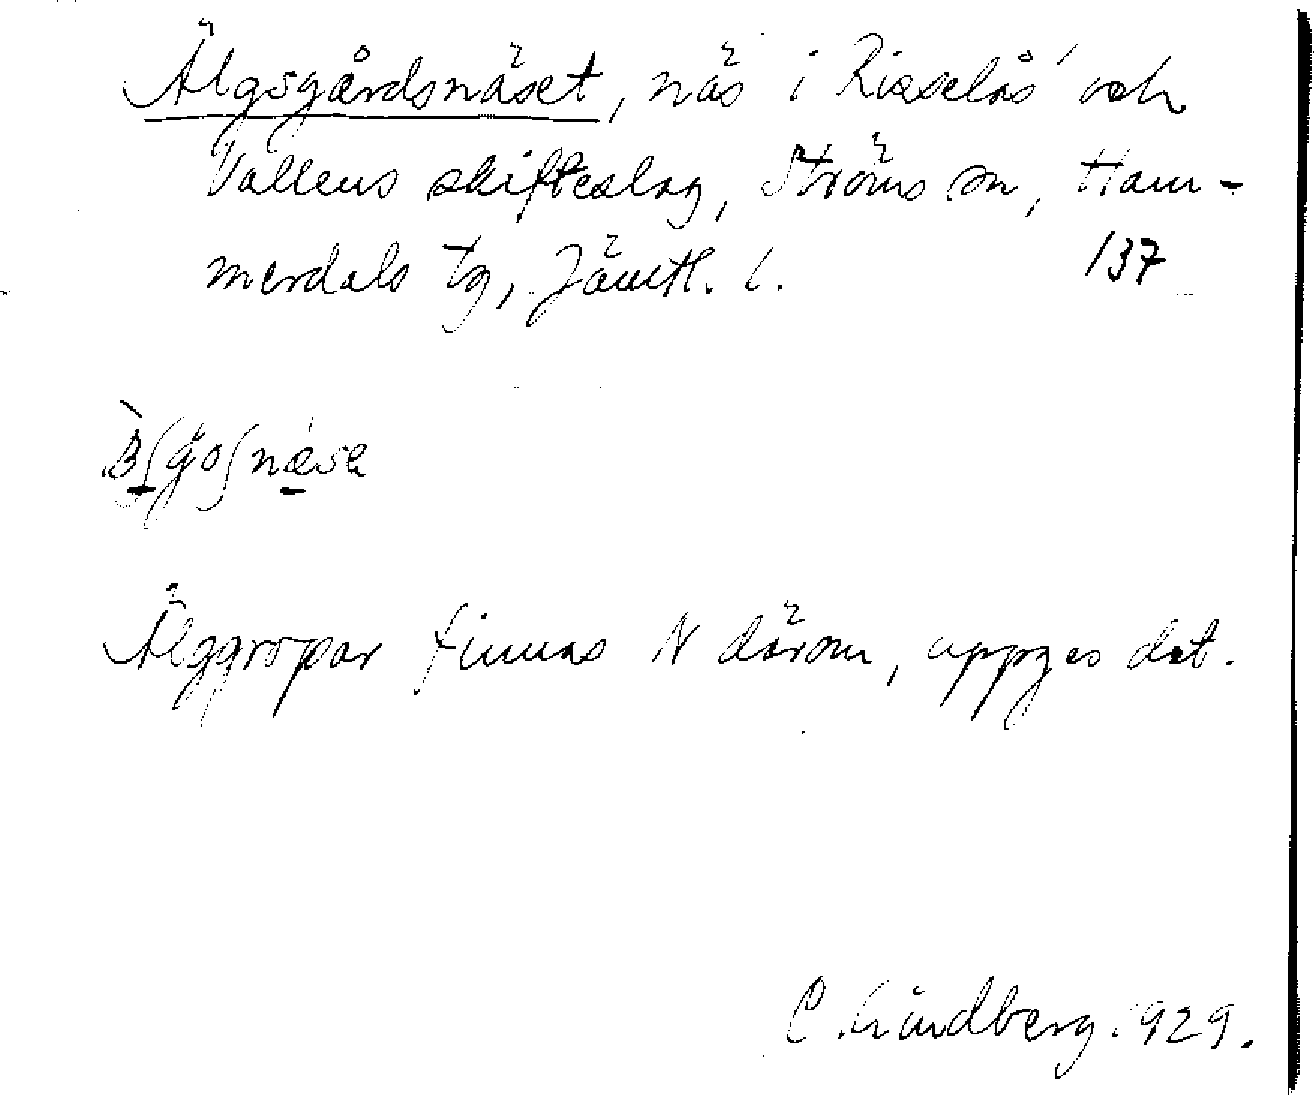 Älgsgårdsnäset, näs i Risselås' och
Vallens skifteslag, Ströms sn, Ham-
merdals tg, Jämtl. l.
137
Älggropar finnas N därom, uppges det.
C. Lindberg. 1929.